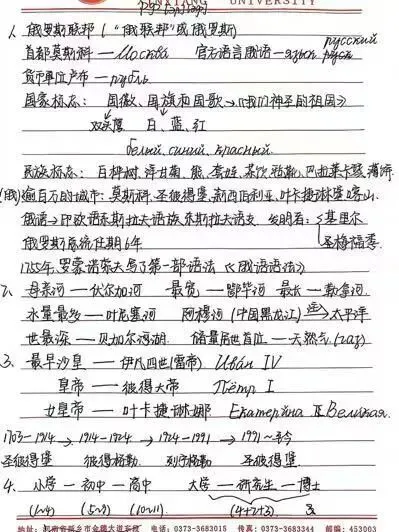 XINXIANG UNIVERSITY
1、俄罗斯联邦("俄联邦"或俄罗斯)
русский
首都莫斯科 — Москва 官方语言俄语 — русск язык
货币单位卢布 — рубль
国家标志: 国徽、国旗和国歌→《我们神圣的祖国》
双头鹰 白、蓝、红
белый, синий, красный.
民族标志: 白桦树、洋甘菊、熊、套娃、茶炊、巴拉莱卡琴、薄饼
(俄)逾百万的城市: 莫斯科、圣彼得堡、新西伯利亚、叶卡捷琳堡、喀山
俄语→印欧语系斯拉夫语族东斯拉夫语支. 发明者: 基里尔
俄罗斯总统任期6年 圣梅福季
1755年, 罗蒙诺索夫写了第一部语法《俄语语法》
2、母亲河 — 伏尔加河 最宽 — 鄂毕河 最长 — 勒拿河
水量最多 — 叶尼塞河 阿穆河(中国黑龙江)→太平洋
世最深 — 贝加尔湖 储量居世首位 — 天然气(газ)
3、最早沙皇 — 伊凡四世(雷帝) Иван IV
皇帝 — 彼得大帝 Пётр I
女皇帝 — 叶卡捷琳娜 Екатерина II Великая
1703-1914 → 1914-1924 → 1924-1991 → 1991~至今
圣彼得堡 彼得格勒 列宁格勒 圣彼得堡
4、小学 — 初中 — 高中 大学 — 研究生 — 博士
(1-4) (5-9) (10-11) (4+2+3) 3
地址: 河南省新乡市金穗大道东段 电话: 0373-3683015 传真: 0373-3683344 邮编: 453003